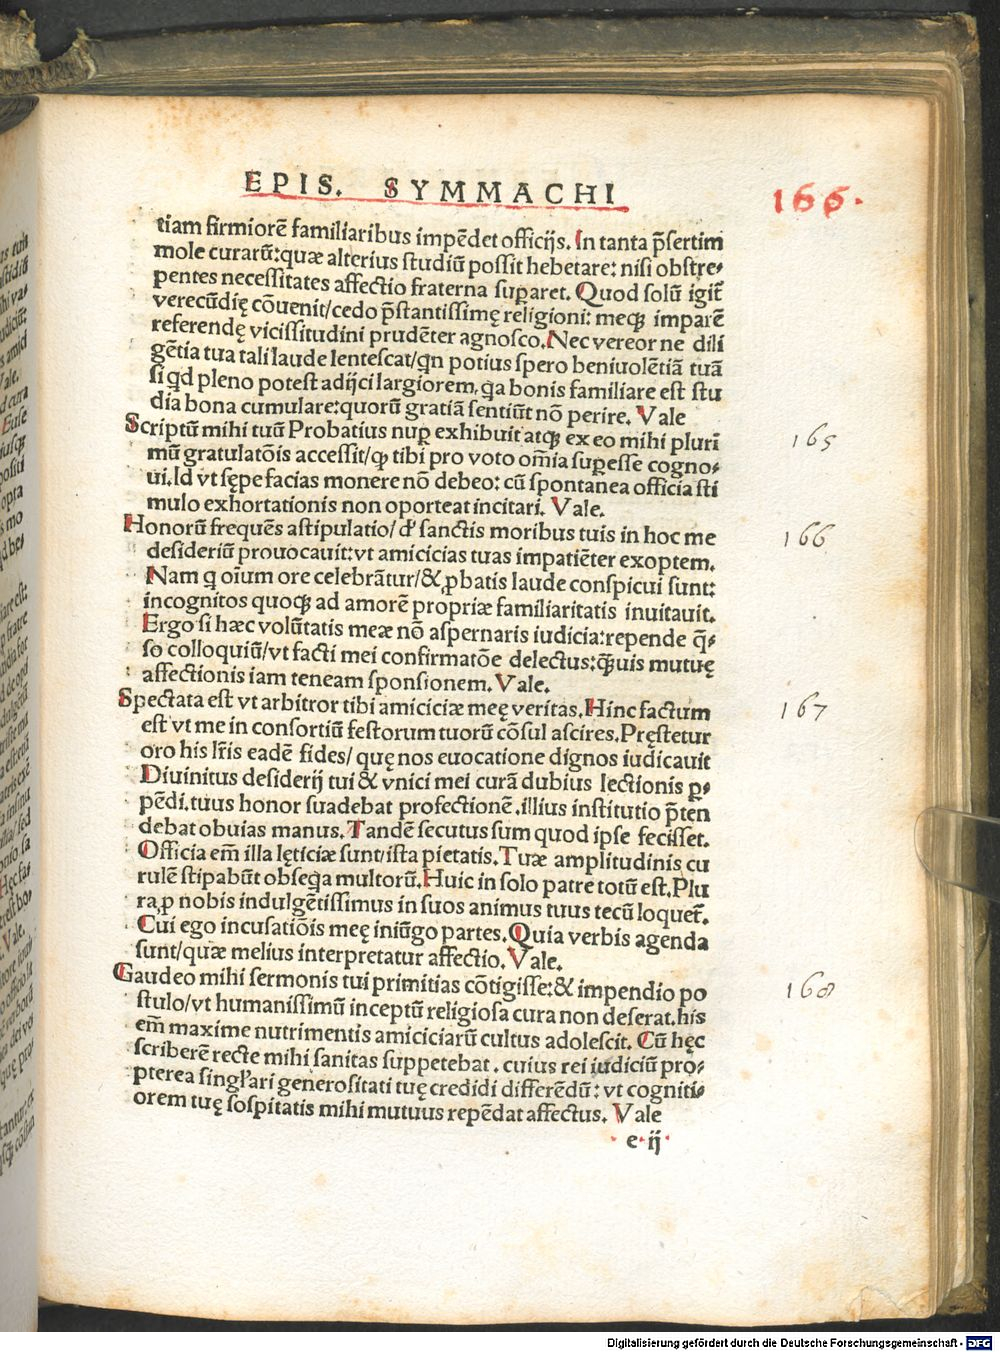 EPIS. SYMMACHI
166.
tiam firmiorē familiaribus impēdet officijs. In tanta p̄sertim
mole curarū: quæ alterius studiū possit hebetare: nisi obstre⸗
pentes necessitates affectio fraterna suꝑaret. Quod solū igit̄
verecūdię cōuenit/cedo p̄stantissimę religioni: meqꝫ imparē
referendę vicissitudini prudēter agnosco. Nec vereor ne dili
gētia tua tali laude lentescat/qn potius spero beniuolētiā tuā
si qd pleno potest adijci largiorem, qa bonis familiare est stu
dia bona cumulare: quorū gratiā sentiūt nō perire. Vale
Scriptū mihi tuū Probatius nuꝑ exhibuit atqꝫ ex eo mihi pluri
mū gratulatōis accessit/ꝙ tibi pro voto om̄ia suꝑesse cogno⸗
ui. Id vt sępe facias monere nō debeo: cū spontanea officia sti
mulo exhortationis non oporteat incitari. Vale.
165
Honorū frequēs astipulatio/d' sanctis moribus tuis in hoc me
desideriū prouocauit: vt amicicias tuas impatiēter exoptem.
Nam q oīum ore celebrātur/& ꝓbatis laude conspicui sunt:
incognitos quoqꝫ ad amorē propriæ familiaritatis inuitauit.
Ergo si hæc volūtatis meæ nō aspernaris iudicia: repende q̄⸗
so colloquiū/vt facti mei confirmatōe delectus: qꝫuis mutuę
affectionis iam teneam sponsionem. Vale.
166
Spectata est vt arbitror tibi amiciciæ meę veritas. Hinc factum
est vt me in consortiū festorum tuorū cōsul ascires. Pręstetur
oro his lr̄is eadē fides/ quę nos euocatione dignos iudicauit
Diuinitus desiderij tui & vnici mei curā dubius lectionis ꝑ⸗
pēdi. tuus honor suadebat profectionē. illius institutio p̄ten
debat obuias manus. Tandē secutus sum quod ipse fecisset.
Officia em̄ illa lęticiæ sunt/ista pietatis. Tuæ amplitudinis cu
rulē stipabūt obseqa multorū. Huic in solo patre totū est. Plu
ra ꝓ nobis indulgētissimus in suos animus tuus tecū loquet̄.
Cui ego incusatiōis meę iniūgo partes. Quia verbis agenda
sunt/quæ melius interpretatur affectio. Vale.
167
Gaudeo mihi sermonis tui primitias cōtigisse: & impendio po
stulo/vt humanissimū inceptū religiosa cura non deserat. his
em̄ maxime nutrimentis amiciciarū cultus adolescit. Cū hęc
scriberē recte mihi sanitas suppetebat. cuius rei iudiciū pro⸗
pterea singl'ari generositati tuę credidi differēdū: vt cogniti⸗
orem tuę sospitatis mihi mutuus repēdat affectus. Vale
168
e ij
Digitalisierung gefördert durch die Deutsche Forschungsgemeinschaft - DFG